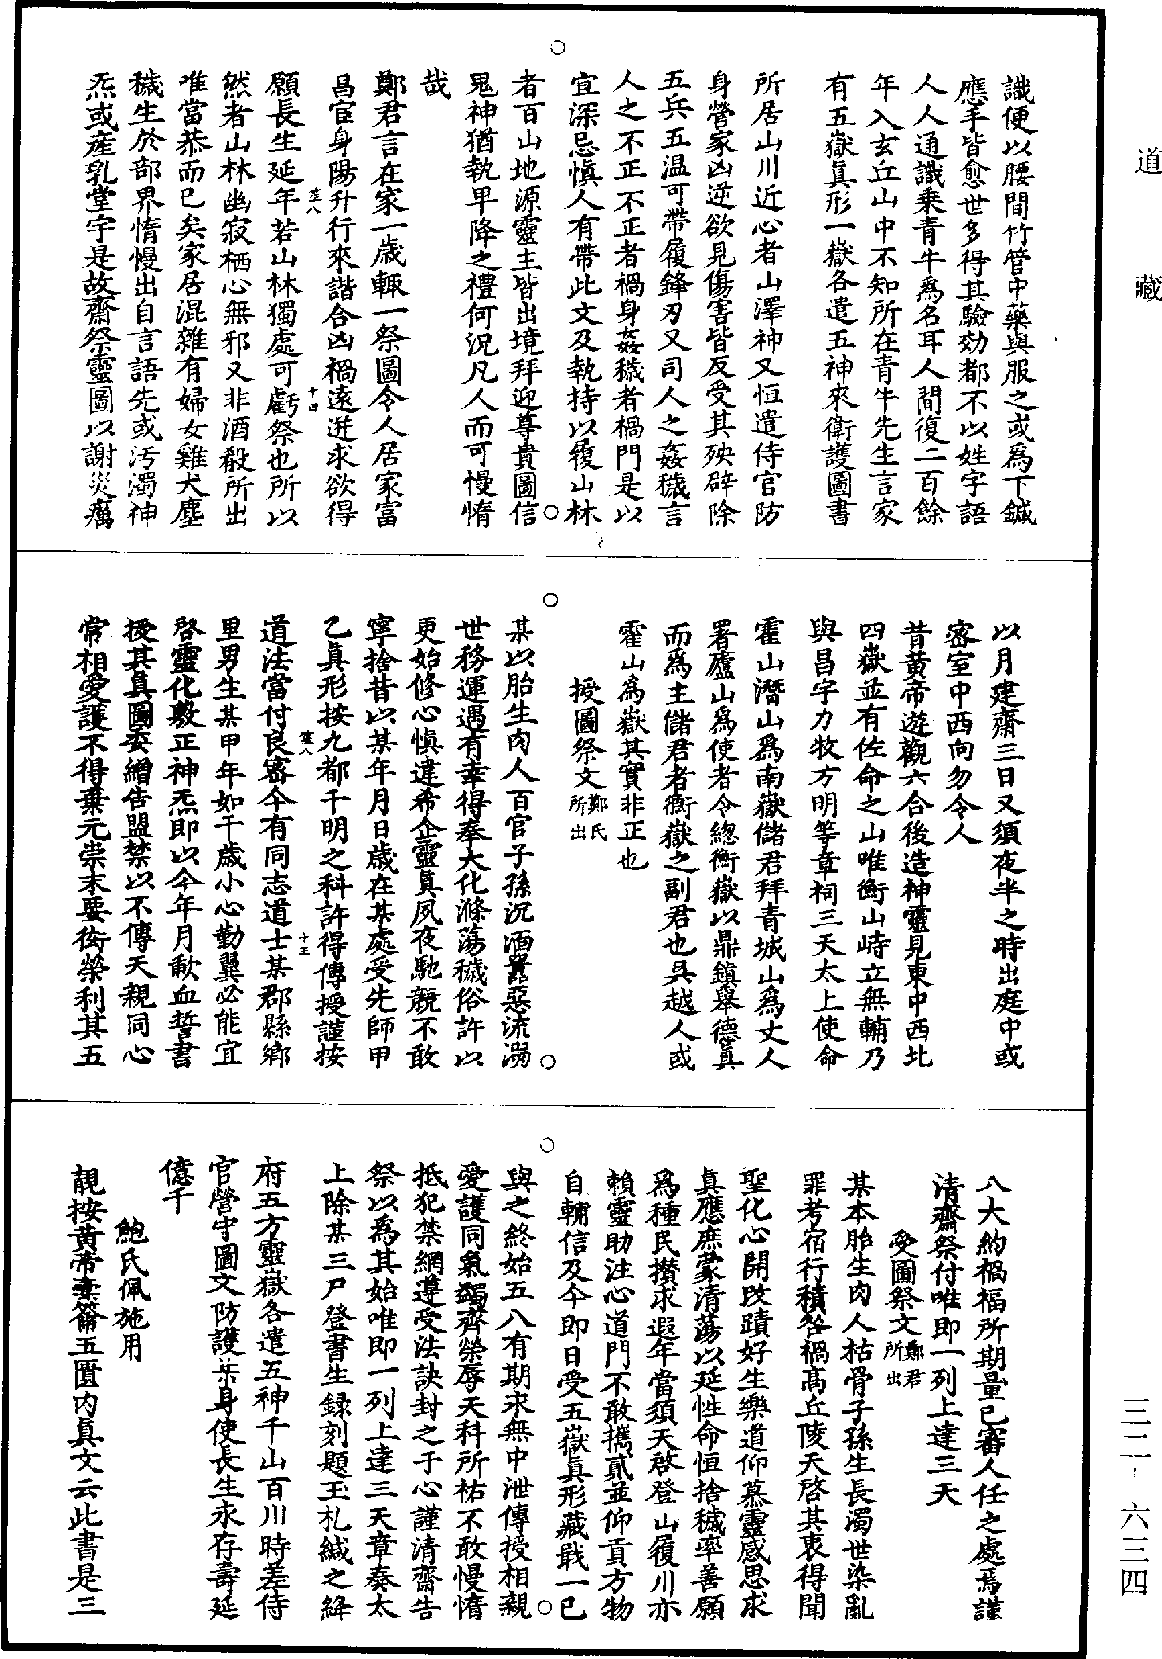 道藏
識便以腰間竹管中藥與服之或為下鍼
應手皆愈世多得其驗効都不以姓字語
人人通識乗青牛為名耳人間復二百餘
年入玄丘山中不知所在青牛先生言家
有五嶽真形一嶽各遣五神來衛護圖書
所居山川近心者山澤神又恒遣侍官防
身營家凶逆欲見傷害皆反受其殃辟除
五兵五温可帶履鋒刃又司人之姦穢言
人之不正不正者禍身姦穢者禍門是以
宜深忌慎人有帶此文及執持以履山林
者百山地源靈主皆出境拜迎尊貴圖信
鬼神猶執卑降之禮何況凡人而可慢惰
哉
鄭君言在家一歲輒一祭圖令人居家富
昌宦身陽升行來諧合凶禍遠逬求欲得
願長生延年若山林獨處可虧祭也所以
然者山林幽寂栖心無邪又非酒殽所出
唯當恭而已矣家居混雜有婦女雞犬塵
穢生於部界惰慢出自言語先或汚濁神
炁或産乳堂宇是故齋祭靈圖以謝災癘
以月建齋三日又須夜半之時出庭中或
密室中西向勿令人
昔黄帝遊觀六合後造神靈見東中西北
四嶽並有佐命之山唯衡山峙立無輔乃
與昌宇力牧方明等章祠三天太上使命
霍山濳山為南嶽儲君拜青城山為丈人
署廬山為使者令總衡嶽以鼎鎮舉德真
而為主儲君者衡嶽之副君也吳越人或
霍山為嶽其實非正也
授圖祭文鄭氏所出
某以胎生肉人百官子孫沉酒罪惡流溺
世務運遇有幸得奉大化滌蕩穢俗許以
更始修心慎違希企靈真夙夜馳競不敢
寧捨昔以某年月日歲在某處受先師甲
乙真形按九都千明之科許得傳授謹按
道法當付良審今有同志道士某郡縣鄉
里男生某甲年如干歲小心勤翼必能宜
啓靈化敷正神炁即以今年月歃血誓書
授其真圖委繒告盟禁以不傳天親同心
常相愛護不得棄元崇末要衒榮利其五
八大約禍福所期量已審人任之處焉謹
清齋祭付唯即一列上達三天
受圖祭文鄭君所出
某本胎生肉人枯骨子孫生長濁世染亂
罪考宿行積咎禍高丘陵天啓其衷得聞
聖化心開改蹟好生樂道仰慕靈感思求
真應庶蒙清蕩以延性命恒捨穢率善願
為種民攅求遐年當須天啓登山履川亦
賴靈助注心道門不敢攜貳並仰貢方物
自輔信及今即日受五嶽真形藏戢一已
與之終始五八有期求無中泄傳授相親
愛護同氣蠲齊榮辱天科所祐不敢慢惰
抵犯禁網遵受法訣封之于心謹清齋告
祭以為其始唯即一列上達三天章奏太
上除某三尸登書生錄刻題玉札緘之絳
府五方靈嶽各遣五神千山百川時差侍
官營守圖文防護某身使長生永存壽延
億千
鮑氏佩施用
靚按黄帝素籥玉匱内真文云此書是三
三二－六三四